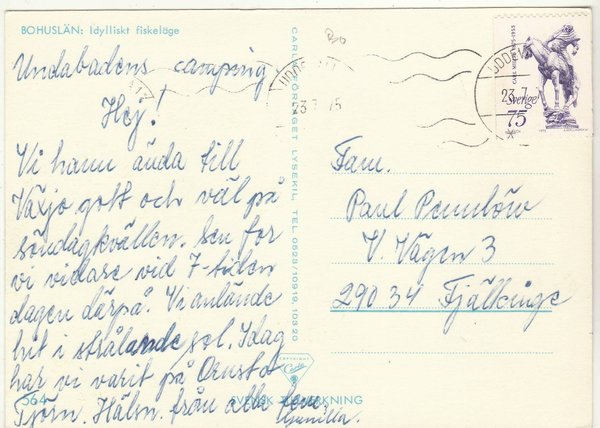 BOHUSLÄN: Idylliskt fiskeläge
Undabadens camping
Hej!
Vi hann ända till
Växjö gott och väl på
söndagkvällen. Sen for
vi vidare vid 7-tiden
dagen därpå. Vi anlände
hit i strålande sol. Idag
har vi varit på Orust o
Tjörn. Hälsn. från alla fem,
Gunilla.
564
SVENSK
CARLA-FÖRLAGET LYSEKIL, TEL. 0523/10919, 10320
COPYRIGHT
Carla
23.7.75
UDDEV
23.7
CARL MILLES 1875-1955
Sverige
75
Fam.
Paul Pemlöw
V. Vägen 3
290 34 Fjälkinge